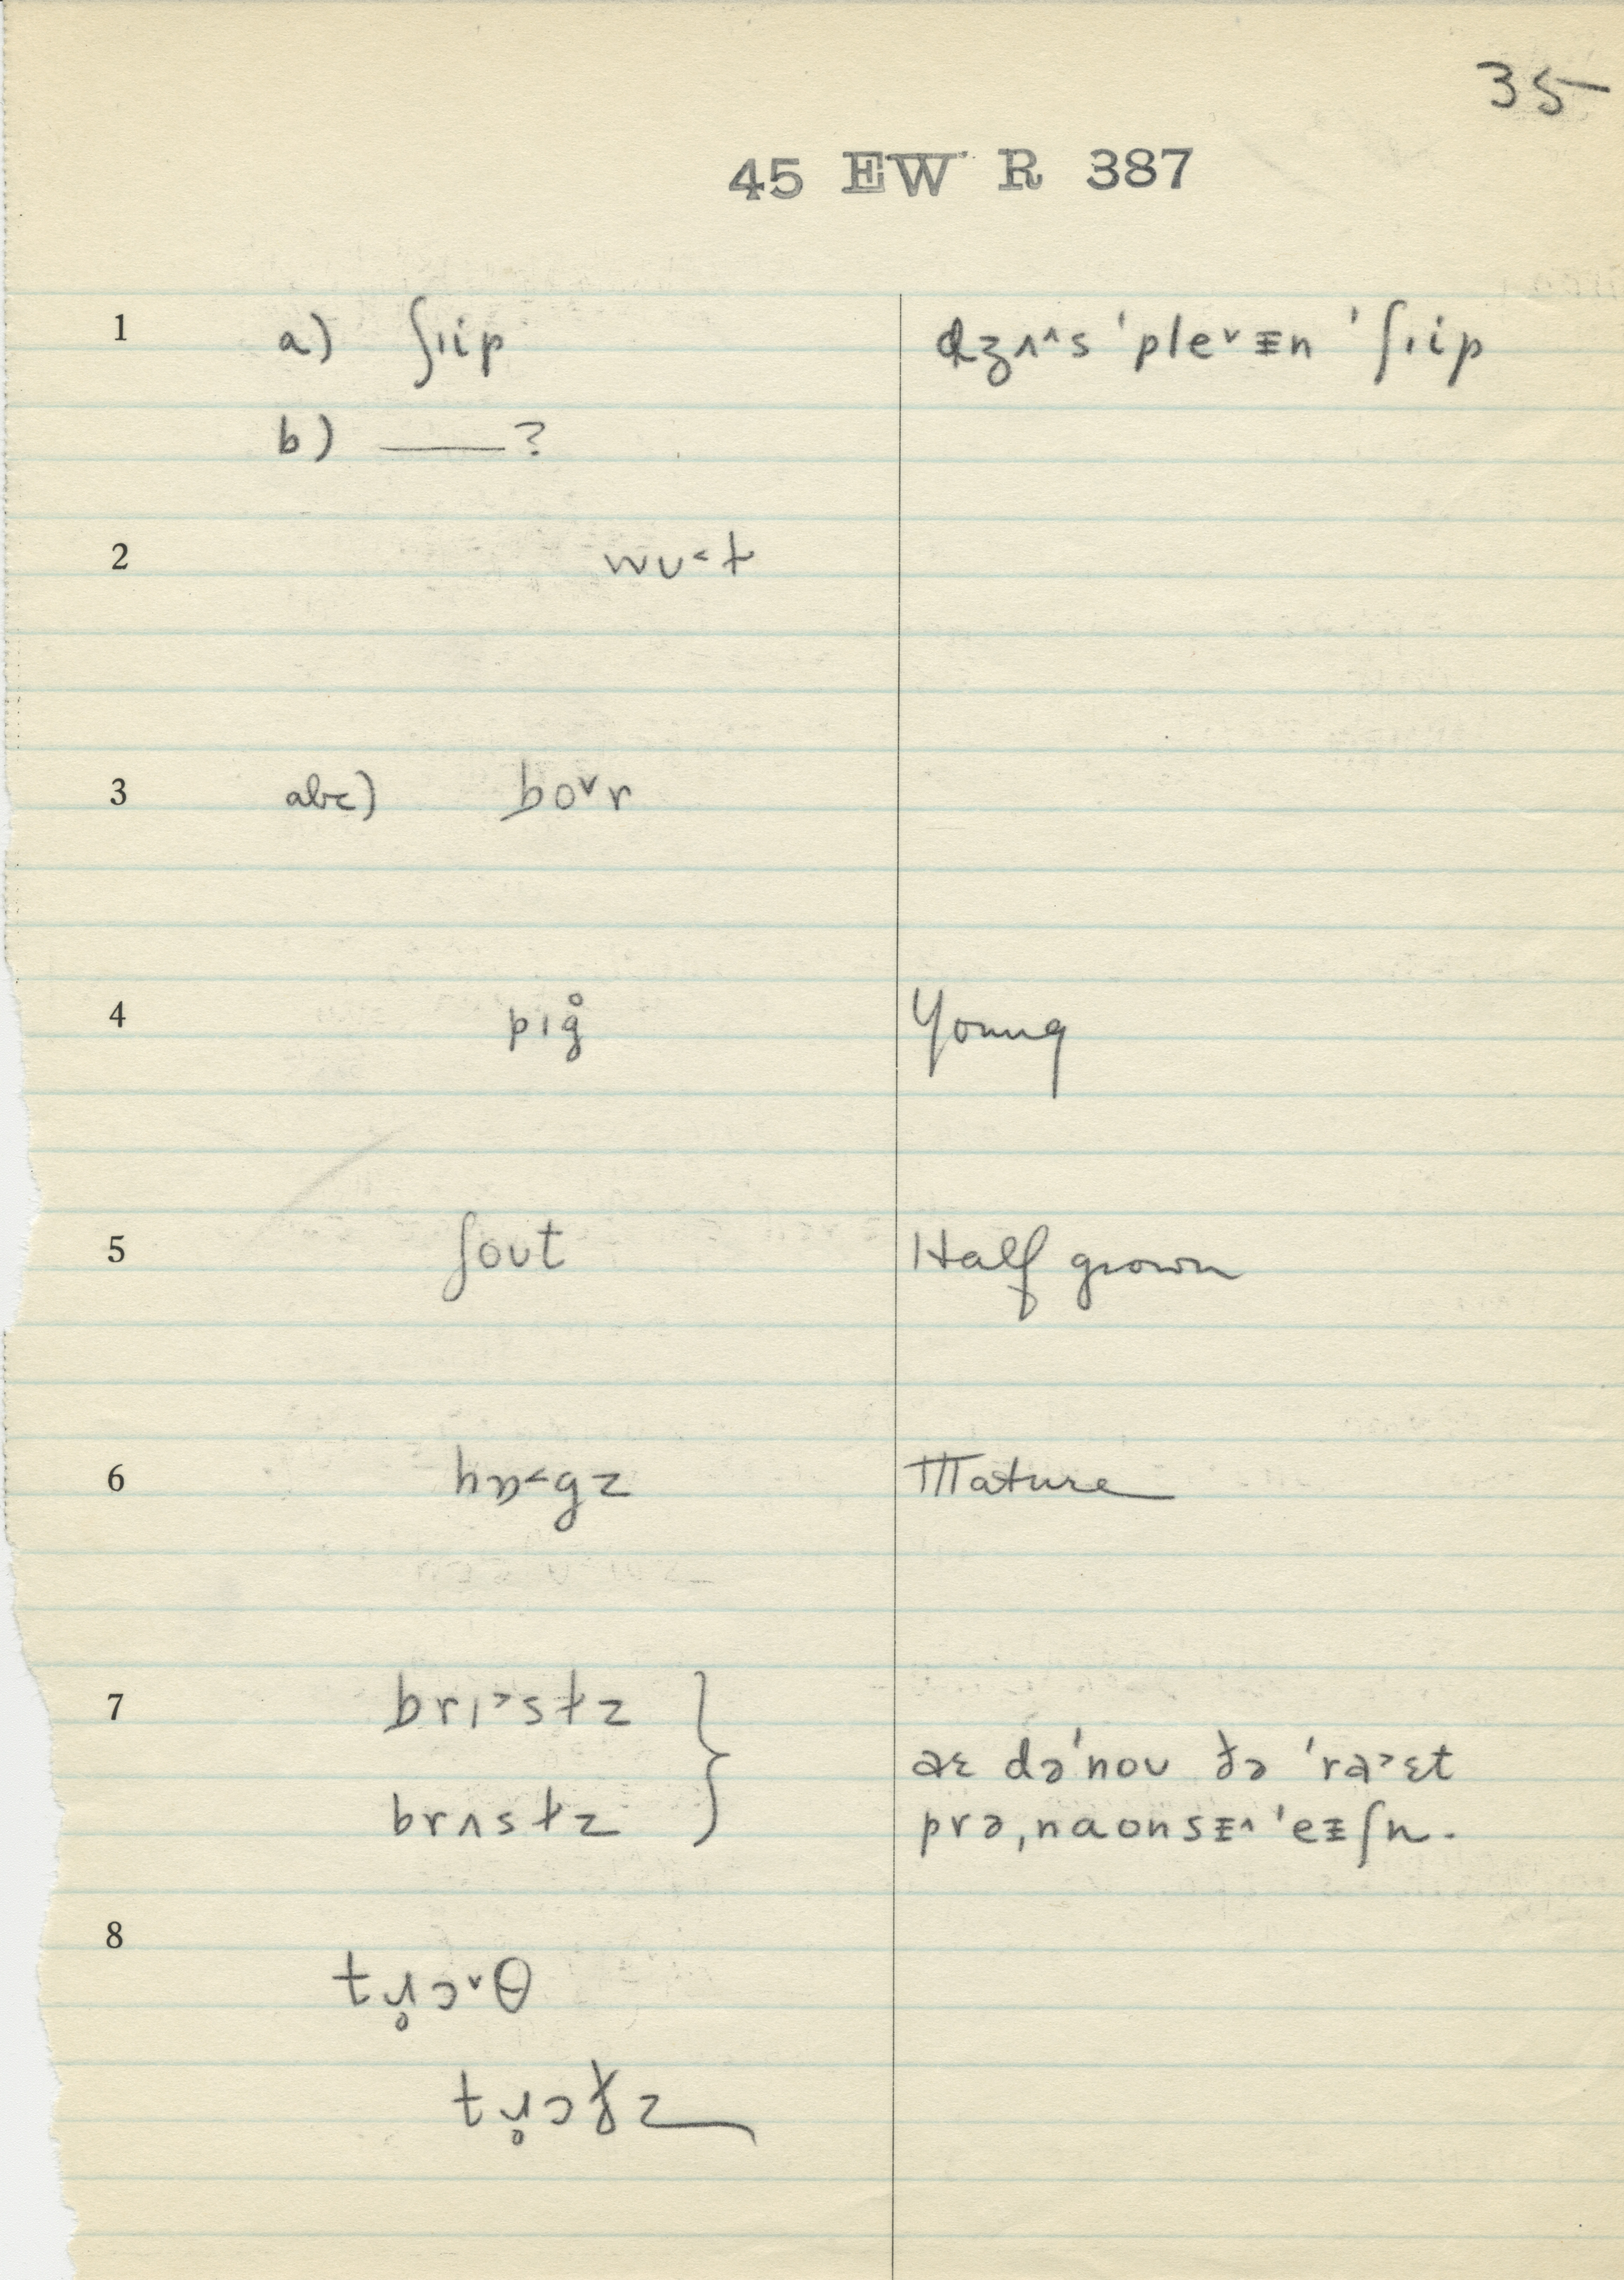 35
45 EW R 387
1 a) ʃɪip dʒʌ^s 'pleˇɪ̵n 'ʃɪip
b) ——?
2 wʊ˂ɫ
3 abc) boˇr
4 pɪg̊ Young
5 ʃoʊt Half grown
6 hɒ˂gz Mature
7 brɪ˃sɫz
brʌsɫz
aɛ də'noʊ ðə 'ra˃ɛt
prəˌnaonsɪ̵^'eɪ̵ʃn.
8 tɹ̥ɔˇθ
tɹ̥ɔðz